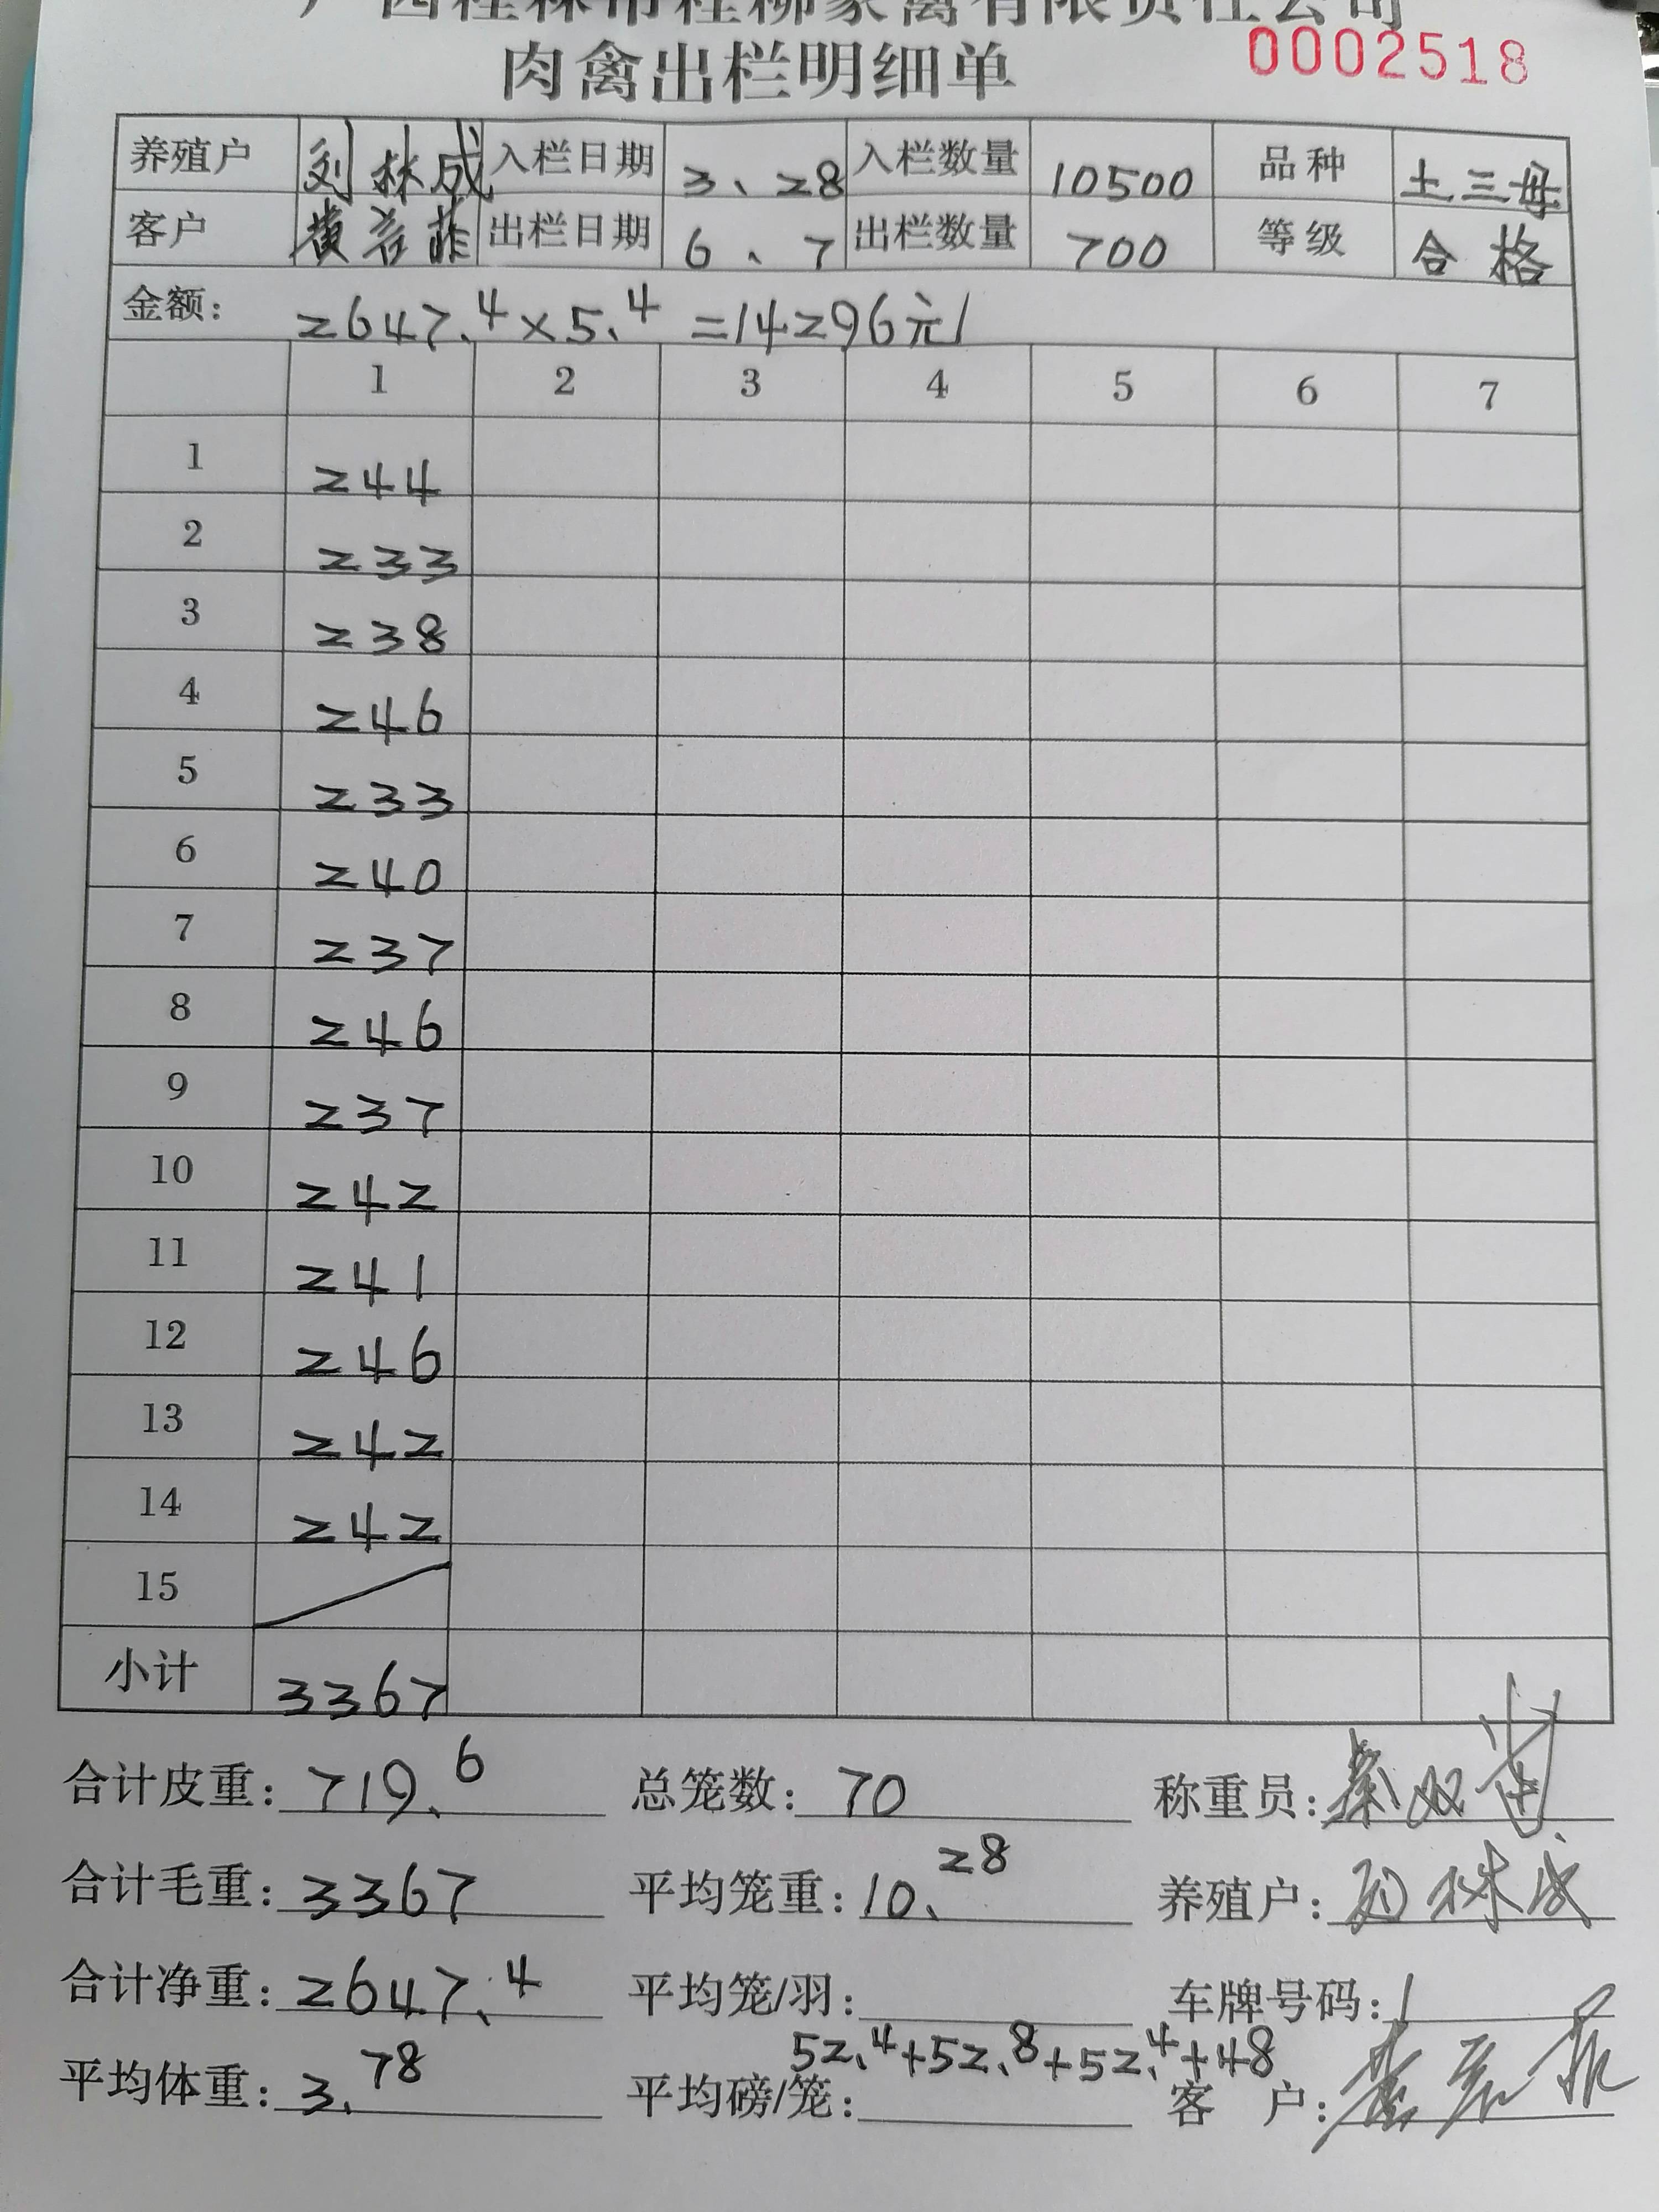 广西桂林市桂柳家禽有限责任公司
肉禽出栏明细单 0002518
养殖户 刘林成 入栏日期 3、28 入栏数量 10500 品种 土三母
客户 出栏日期 6、7 出栏数量 700 等级 合格
金额: 2647.4×5.4=14296元
1 2 3 4 5 6 7
1 244
2 233
3 238
4 246
5 233
6 240
7 237
8 246
9 237
10 242
11 241
12 246
13 242
14 242
15
小计 3367
合计皮重: 719.6 总笼数: 70 称重员:
合计毛重: 3367 平均笼重: 10.28 养殖户: 刘林成
合计净重: 2647.4 平均笼/羽: 车牌号码:
52.4+52.8+52.4+48
平均体重: 3.78 平均磅/笼: 客 户: